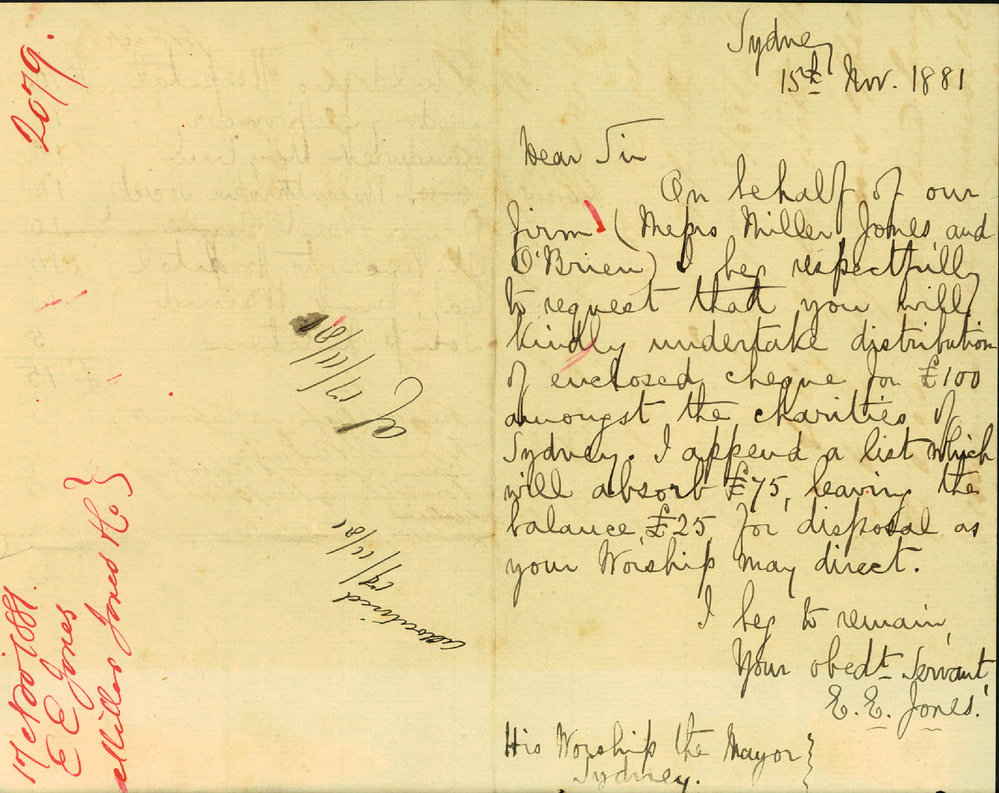 2079.
17 Nov 1881.
E E Jones
Miller Jones &Co.
17/11/81
19/11/81
Sydney
15th Nov. 1881
Dear Sir
On behalf of our
firm (Messrs Miller Jones and
O'Brien) I beg respectfully
to request that you will
kindly undertake distribution
of enclosed cheque for £100
amongst the charities of
Sydney. I append a list which
will absorb £75, leaving the
balance, £25, for disposal as
your Worship may direct.
I beg to remain,
Your obedt. Servant,
E. E. Jones.
His Worship the Mayor }
Sydney.